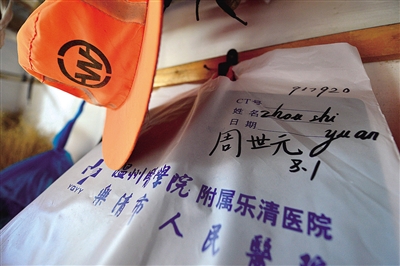 CT号 717920
姓名 zhou shi yuan
日期 周世元
8.1
YQYY 温州医学院 附属乐清医院
樂清市 人民醫院